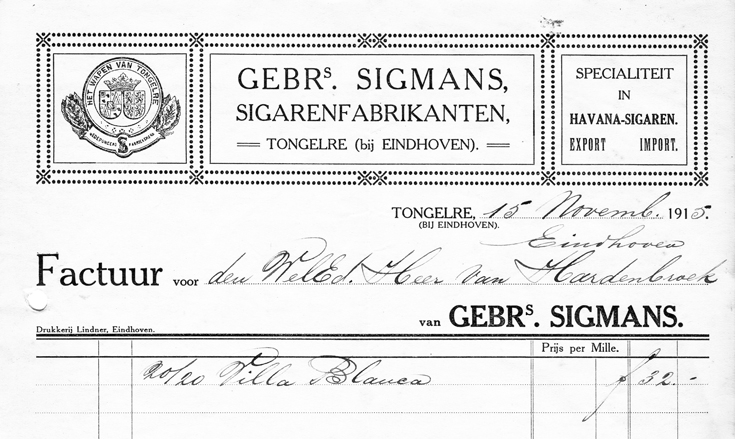 HET WAPEN VAN TONGELRE
GEDEPONEERD FABRIEKSMERK
GEBRS. SIGMANS,
SIGARENFABRIKANTEN,
TONGELRE (bij EINDHOVEN).
SPECIALITEIT
IN
HAVANA-SIGAREN.
EXPORT IMPORT.
TONGELRE, 15 Novemb. 1915.
(BIJ EINDHOVEN).
Eindhoven
Factuur voor den WelEd. Heer van Hardenbroek
van GEBRS. SIGMANS.
Drukkerij Lindner, Eindhoven.
Prijs per Mille.
20/20 Villa Blanca f 32.-